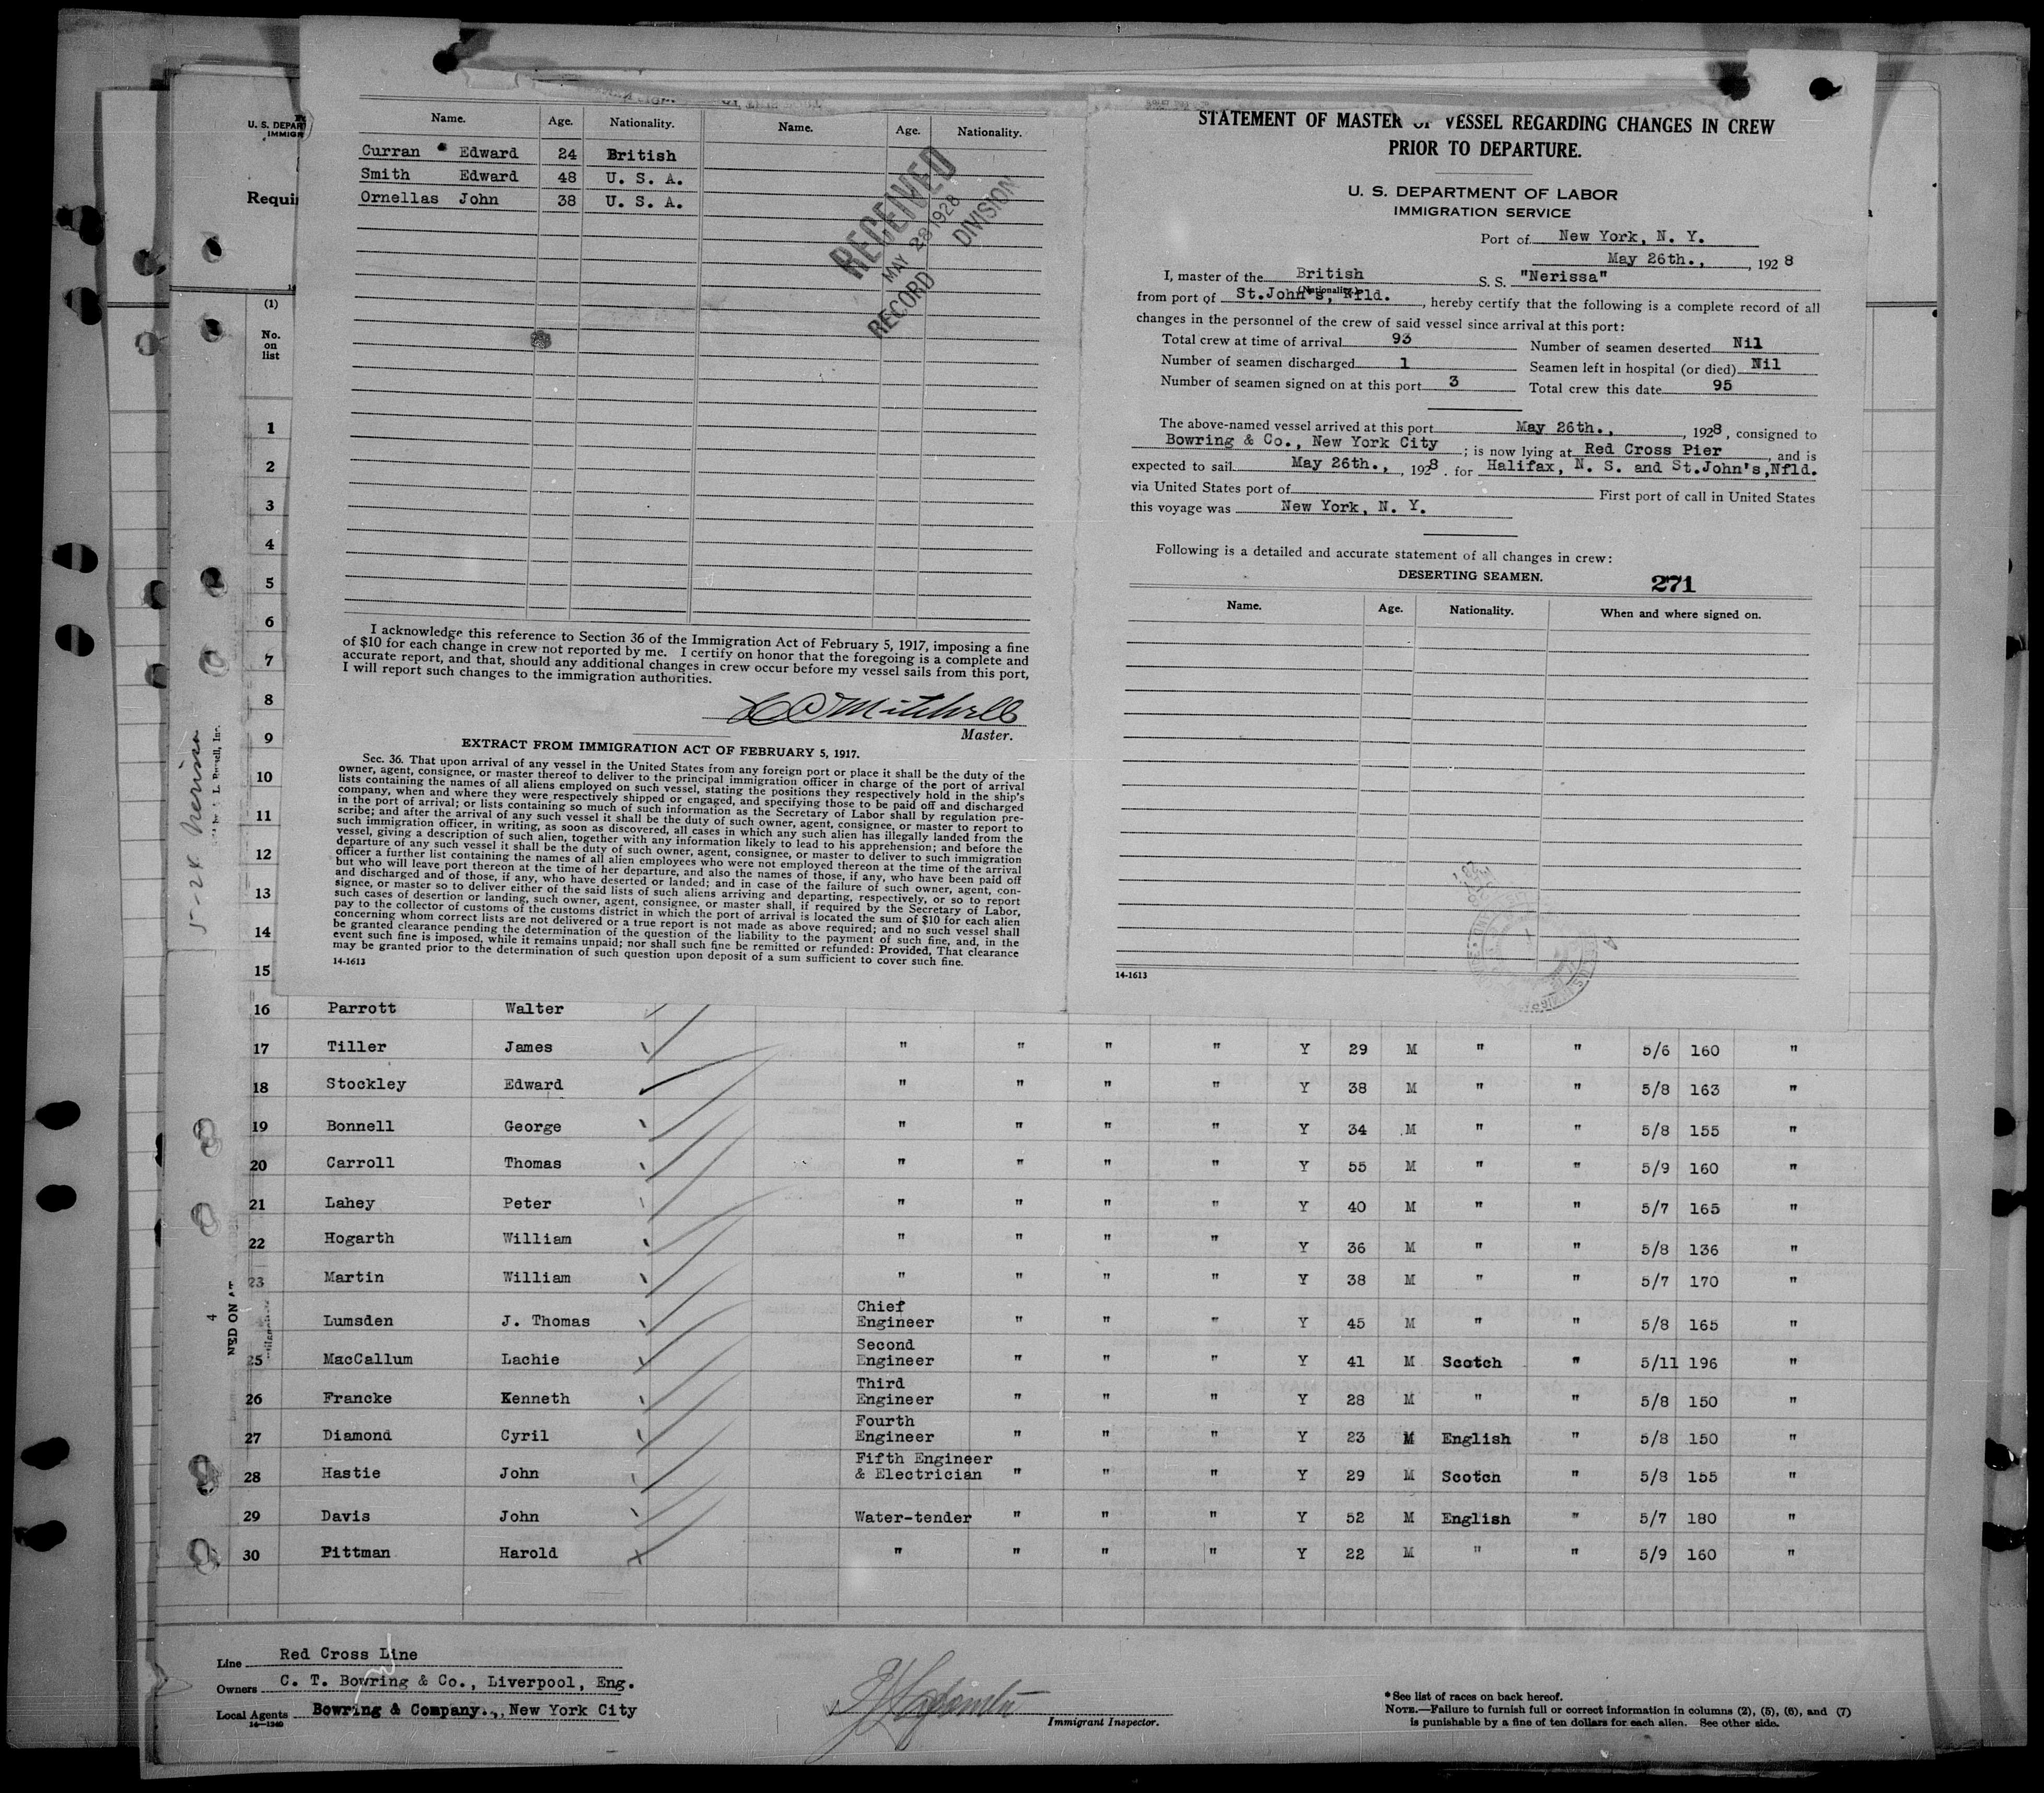 U. S. DEPAR
IMMIGR
Requi
(1)
No.
on
list
Name. Age. Nationality. Name. Age. Nationality.
Curran Edward 24 British
Smith Edward 48 U. S. A.
Ornellas John 38 U. S. A.
RECEIVED
MAY 28 1928
RECORD DIVISION
I acknowledge this reference to Section 36 of the Immigration Act of February 5, 1917, imposing a fine
of $10 for each change in crew not reported by me. I certify on honor that the foregoing is a complete and
accurate report, and that, should any additional changes in crew occur before my vessel sails from this port,
I will report such changes to the immigration authorities.
Mitchell
Master.
EXTRACT FROM IMMIGRATION ACT OF FEBRUARY 5, 1917.
Sec. 36. That upon arrival of any vessel in the United States from any foreign port or place it shall be the duty of the
owner, agent, consignee, or master thereof to deliver to the principal immigration officer in charge of the port of arrival
lists containing the names of all aliens employed on such vessel, stating the positions they respectively hold in the ship's
company, when and where they were respectively shipped or engaged, and specifying those to be paid off and discharged
in the port of arrival; or lists containing so much of such information as the Secretary of Labor shall by regulation pre-
scribe; and after the arrival of any such vessel it shall be the duty of such owner, agent, consignee, or master to report to
such immigration officer, in writing, as soon as discovered, all cases in which any such alien has illegally landed from the
vessel, giving a description of such alien, together with any information likely to lead to his apprehension; and before the
departure of any such vessel it shall be the duty of such owner, agent, consignee, or master to deliver to such immigration
officer a further list containing the names of all alien employees who were not employed thereon at the time of the arrival
but who will leave port thereon at the time of her departure, and also the names of those, if any, who have been paid off
and discharged and of those, if any, who have deserted or landed; and in case of the failure of such owner, agent, con-
signee, or master so to deliver either of the said lists of such aliens arriving and departing, respectively, or so to report
such cases of desertion or landing, such owner, agent, consignee, or master shall, if required by the Secretary of Labor,
pay to the collector of customs of the customs district in which the port of arrival is located the sum of $10 for each alien
concerning whom correct lists are not delivered or a true report is not made as above required; and no such vessel shall
be granted clearance pending the determination of the question of the liability to the payment of such fine, and, in the
event such fine is imposed, while it remains unpaid; nor shall such fine be remitted or refunded: Provided, That clearance
may be granted prior to the determination of such question upon deposit of a sum sufficient to cover such fine.
14-1613
STATEMENT OF MASTER OF VESSEL REGARDING CHANGES IN CREW
PRIOR TO DEPARTURE.
U. S. DEPARTMENT OF LABOR
IMMIGRATION SERVICE
Port of New York, N. Y.
May 26th., , 1928
I, master of the British S. S. "Nerissa"
(Nationality.)
from port of St.John's, Nfld. , hereby certify that the following is a complete record of all
changes in the personnel of the crew of said vessel since arrival at this port:
Total crew at time of arrival 93 Number of seamen deserted Nil
Number of seamen discharged 1 Seamen left in hospital (or died) Nil
Number of seamen signed on at this port 3 Total crew this date 95
The above-named vessel arrived at this port May 26th., , 1928, consigned to
Bowring & Co., New York City ; is now lying at Red Cross Pier , and is
expected to sail May 26th., , 1928. for Halifax, N. S. and St.John's,Nfld.
via United States port of First port of call in United States
this voyage was New York, N. Y.
Following is a detailed and accurate statement of all changes in crew:
DESERTING SEAMEN. 271
Name. Age. Nationality. When and where signed on.
14-1613
5-28 Nerissa
1
2
3
4
5
6
7
8
9
10
11
12
13
14
15
16 Parrott Walter
17 Tiller James " " " " Y 29 M " " 5/6 160 "
18 Stockley Edward " " " " Y 38 M " " 5/8 163 "
19 Bonnell George " " " " Y 34 M " " 5/8 155 "
20 Carroll Thomas " " " " Y 55 M " " 5/9 160 "
21 Lahey Peter " " " " Y 40 M " " 5/7 165 "
22 Hogarth William " " " " Y 36 M " " 5/8 136 "
23 Martin William " " " " Y 38 M " " 5/7 170 "
Lumsden J. Thomas Chief Engineer " " " Y 45 M " " 5/8 165 "
25 MacCallum Lachie Second Engineer " " " Y 41 M Scotch " 5/11 196 "
26 Francke Kenneth Third Engineer " " " Y 28 M " " 5/8 150 "
27 Diamond Cyril Fourth Engineer " " " Y 23 M English " 5/8 150 "
28 Hastie John Fifth Engineer & Electrician " " " Y 29 M Scotch " 5/8 155 "
29 Davis John Water-tender " " " Y 52 M English " 5/7 180 "
30 Pittman Harold " " " " Y 22 M " " 5/9 160 "
4
NED ON AT
Line Red Cross Line
Owners C. T. Bowring & Co., Liverpool, Eng.
Local Agents Bowring & Company., New York City
14-1240
Immigrant Inspector.
* See list of races on back hereof.
NOTE.—Failure to furnish full or correct information in columns (2), (5), (6), and (7)
is punishable by a fine of ten dollars for each alien. See other side.